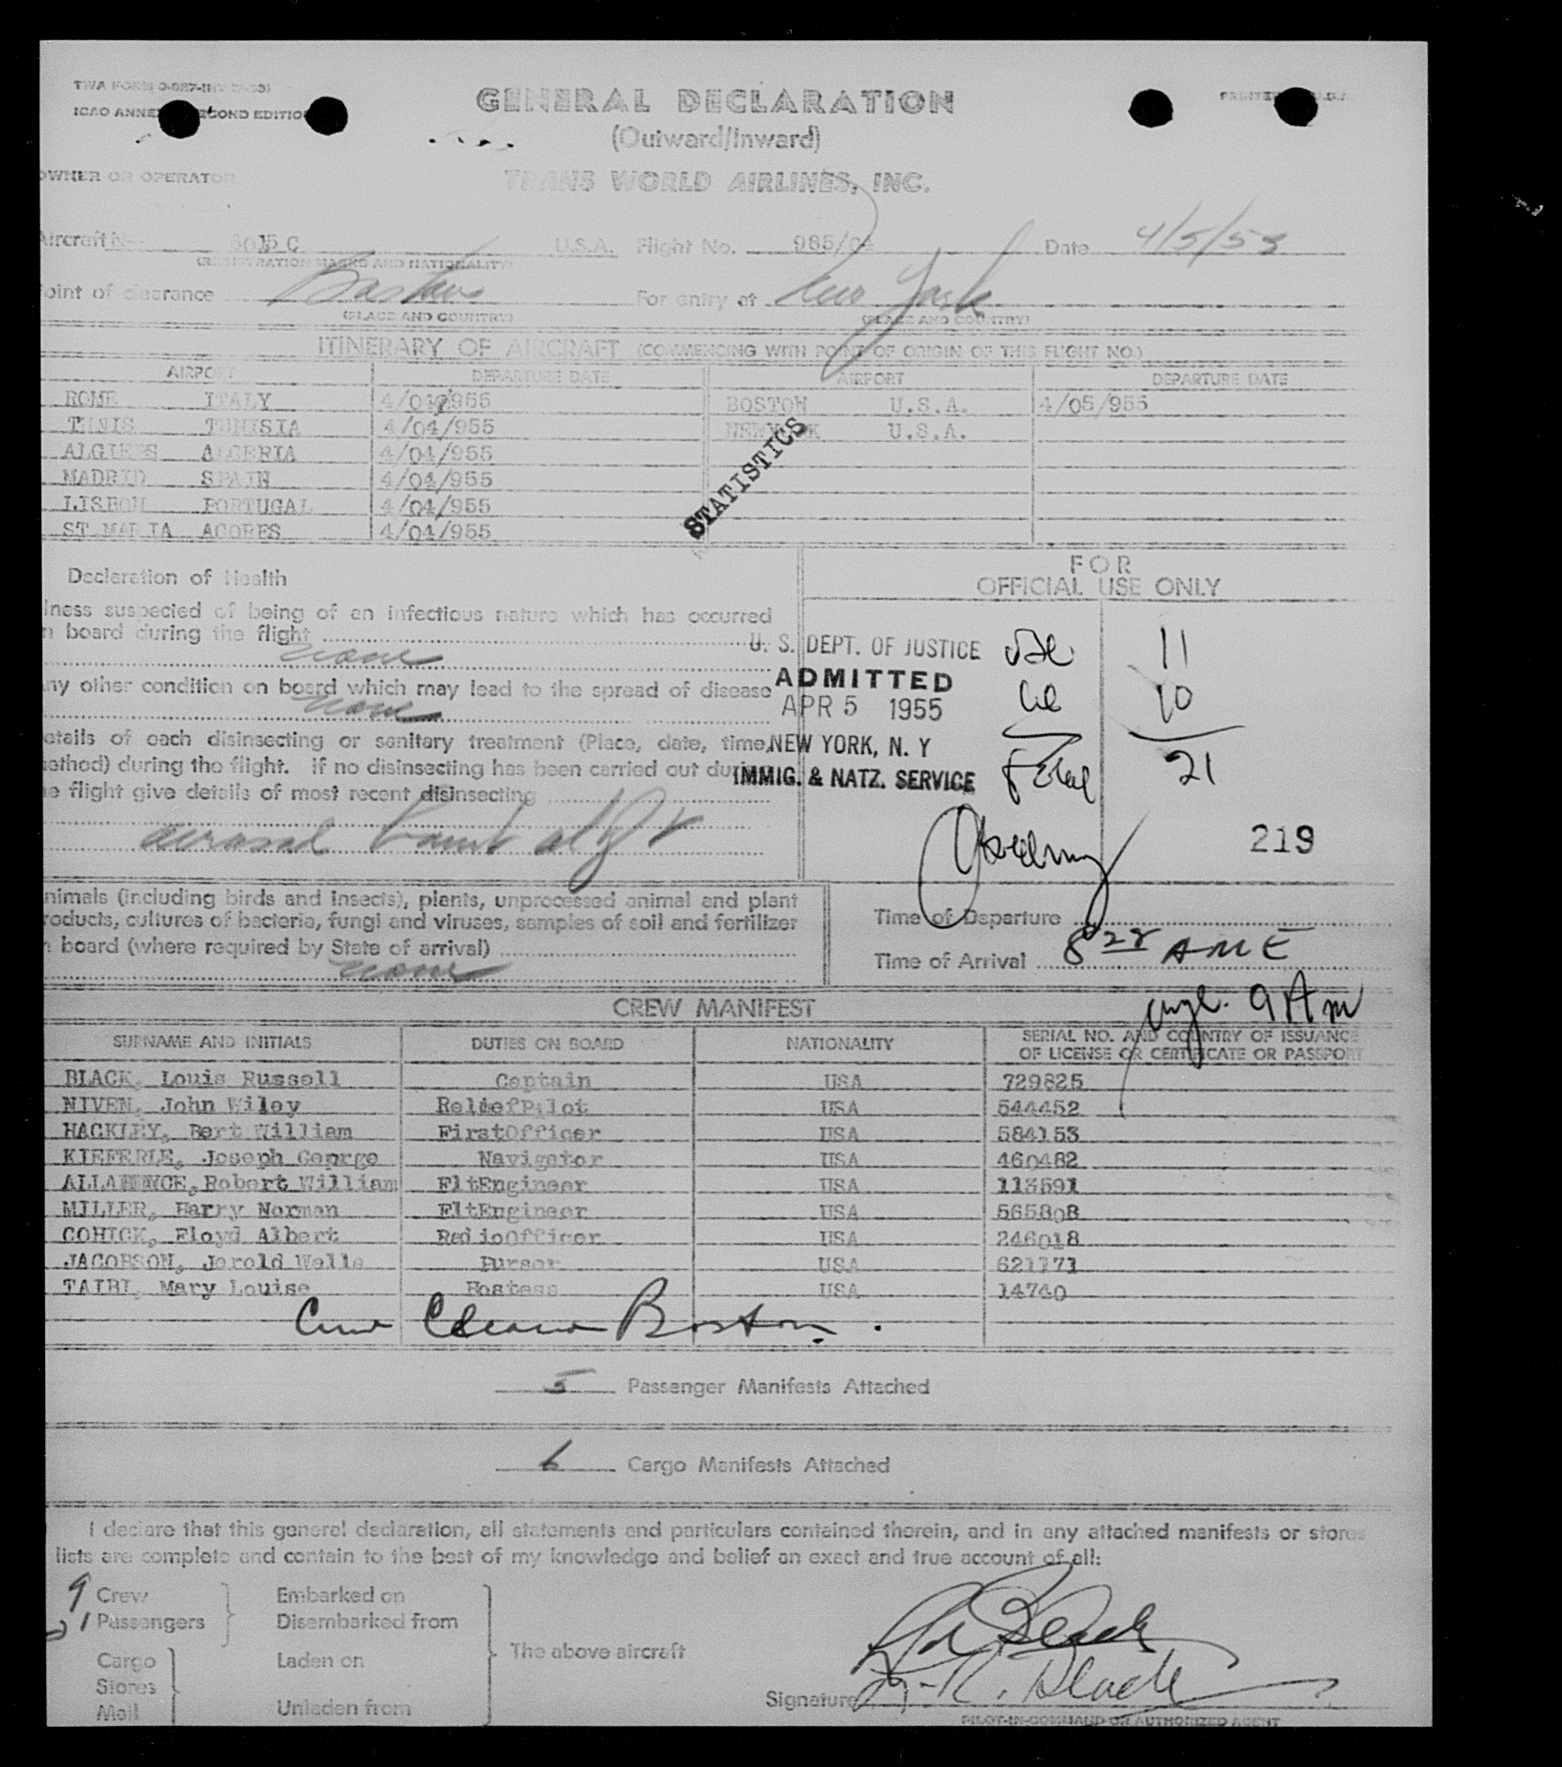 GENERAL DECLARATION
(Outward/Inward)
OWNER OR OPERATOR TRANS WORLD AIRLINES, INC.
Aircraft U.S.A. Flight No. 985/04 Date 4/5/55
(REGISTRATION MARKS AND NATIONALITY)
Point of clearance Boston For entry at New York
(PLACE AND COUNTRY) (PLACE AND COUNTRY)
ITINERARY OF AIRCRAFT (COMMENCING WITH POINT OF ORIGIN OF THIS FLIGHT NO.)
AIRPORT DEPARTURE DATE AIRPORT DEPARTURE DATE
ROME ITALY 4/04/955 BOSTON U.S.A. 4/05/955
TUNIS TUNISIA 4/04/955 NEW YORK U.S.A.
ALGIERS ALGERIA 4/04/955
MADRID SPAIN 4/04/955
LISBON PORTUGAL 4/04/955
ST.MARIA ACORES 4/04/955
STATISTICS
Declaration of Health
lness suspected of being of an infectious nature which has occurred
n board during the flight
none
ny other condition on board which may lead to the spread of disease
none
etails of each disinsecting or sanitary treatment (Place, date, time,
ethod) during the flight. If no disinsecting has been carried out during
e flight give details of most recent disinsecting
aerosol bomb
FOR
OFFICIAL USE ONLY
U. S. DEPT. OF JUSTICE
ADMITTED
APR 5 1955
NEW YORK, N. Y
IMMIG. & NATZ. SERVICE
11
10
Total 21
219
nimals (including birds and insects), plants, unprocessed animal and plant
roducts, cultures of bacteria, fungi and viruses, samples of soil and fertilizer
n board (where required by State of arrival)
none
Time of Departure
Time of Arrival 8 22 AM E
9 AM
CREW MANIFEST
SURNAME AND INITIALS DUTIES ON BOARD NATIONALITY SERIAL NO. AND COUNTRY OF ISSUANCE
OF LICENSE OR CERTIFICATE OR PASSPORT
BLACK, Louis Russell Captain USA 729825
NIVEN, John Wiley ReliefPilot USA 544452
HACKLEY, Bert William FirstOfficer USA 584153
KIEFERLE, Joseph George Navigator USA 460482
Robert William FltEngineer USA 113591
MILLER, Harry Norman FltEngineer USA 565808
COHICK, Floyd Albert RadioOfficer USA 246018
JACOBSON, Jerold Wells Purser USA 621171
TAIBI, Mary Louise Hostess USA 14740
Crew Boston.
5 Passenger Manifests Attached
6 Cargo Manifests Attached
I declare that this general declaration, all statements and particulars contained therein, and in any attached manifests or stores
lists are complete and contain to the best of my knowledge and belief an exact and true account of all:
9 Crew Embarked on
21 Passengers Disembarked from
The above aircraft
Cargo Laden on
Stores
Mail Unladen from
Signature L. R. Black
PILOT-IN-COMMAND OR AUTHORIZED AGENT